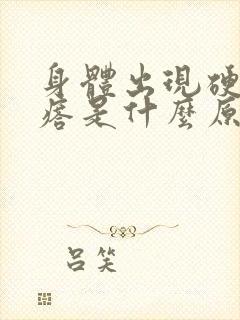 身體出現硬
痞是什麼原
呂笑